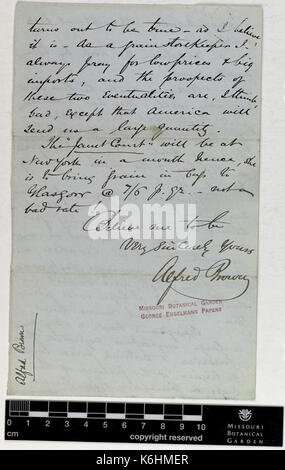 turns out to be true - as I believe
it is - As a grain Storekeeper I
always pray for low prices & big
imports, and the prospects of
these two Eventualities are, I think,
bad, except that America will
Send us a large quantity.
The "Janet Court" will be at
New York in a month hence, she
is to bring grain in bags to
Glasgow @ 7/6 p. qr. - not a
bad rate
Believe me to be
Very Sincerely Yours
Alfred Brown
MISSOURI BOTANICAL GARDEN
GEORGE ENGELMANN PAPERS
Alfred Brown
0 1 2 3 4 5 6 7 8 9 10
cm
copyright reserved
MISSOURI
BOTANICAL
GARDEN
alamy stock photo